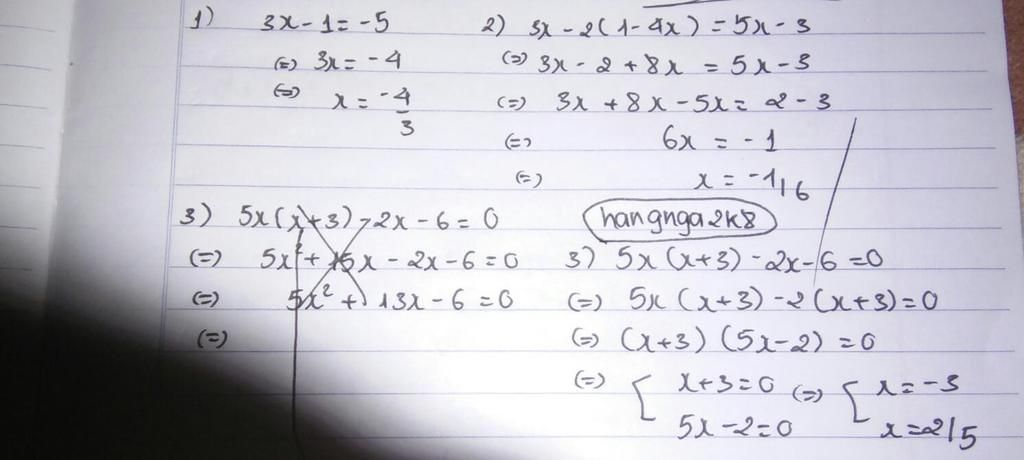 1) 3x - 1 = -5
(=) 3x = -4
(=) x = -4/3
2) 3x - 2(1 - 4x) = 5x - 3
(=) 3x - 2 + 8x = 5x - 3
(=) 3x + 8x - 5x = 2 - 3
(=) 6x = -1
(=) x = -1/6
3) 5x(x+3) - 2x - 6 = 0
(=) 5x² + 15x - 2x - 6 = 0
(=) 5x² + 13x - 6 = 0
(=)
hangnga2k8
3) 5x(x+3) - 2x - 6 = 0
(=) 5x(x+3) - 2(x+3) = 0
(=) (x+3)(5x-2) = 0
(=) [ x+3=0 (=) [ x = -3
5x-2=0 x=2/5